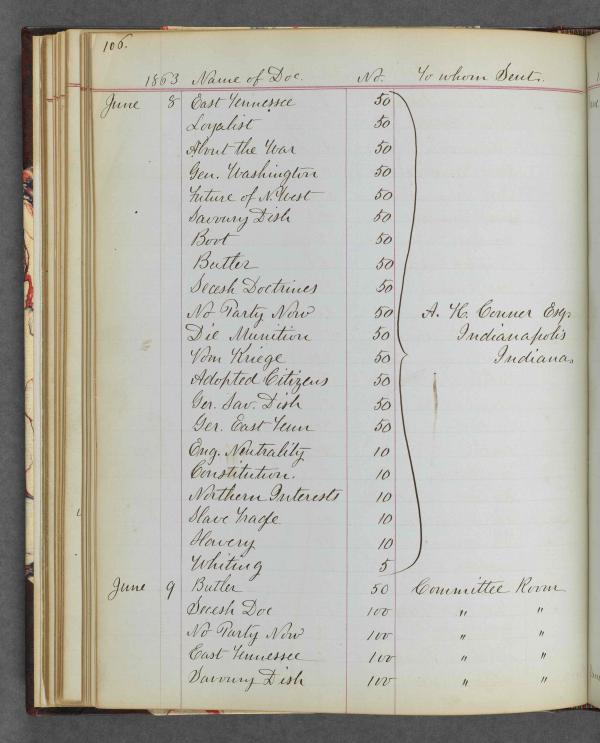 106.
1863 Name of Doc. No. To whom Sent.
June 8 East Tennessee 50
Loyalist 50
About the War 50
Gen. Washington 50
Future of N. West 50
Savoury Dish 50
Boot 50
Butler 50
Secesh Doctrines 50
No Party Now 50 A. H. Conner Esq.
Die Munition 50 Indianapolis
Vom Kriege 50 Indiana.
Adopted Citizens 50
Ger. Sav. Dish 50
Ger. East Tenn 50
Eng. Neutrality 10
Constitution. 10
Northern Interests 10
Slave Trade 10
Slavery 10
Whiting 5
June 9 Butler 50 Committee Room
Secesh Doc 100 " "
No Party Now 100 " "
East Tennessee 100 " "
Savoury Dish 100 " "